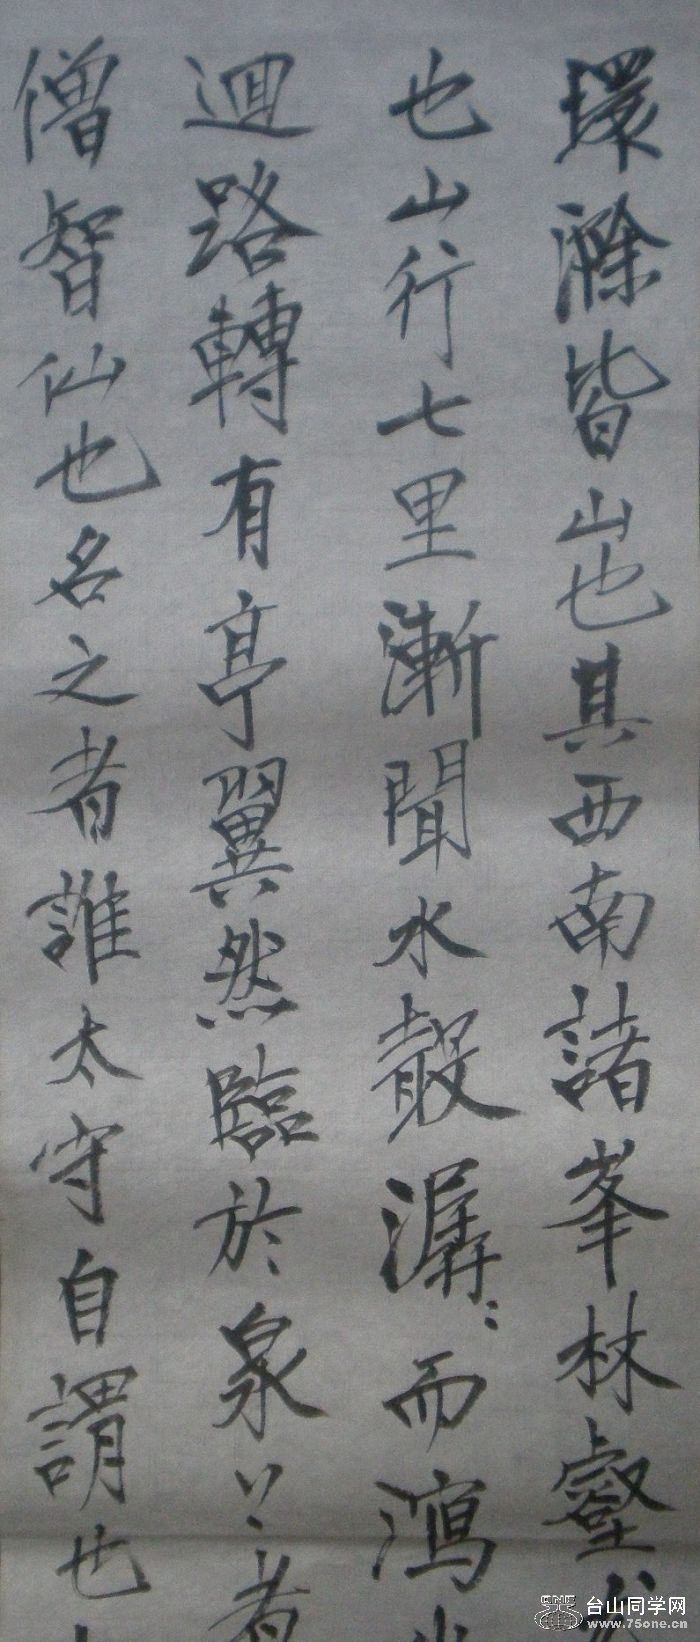 環滁皆山也其西南諸峯林壑
也山行七里漸聞水聲潺〻而瀉
迴路轉有亭翼然臨於泉上者
僧智仙也名之者誰太守自謂也
台山同学网
www.75one.cn